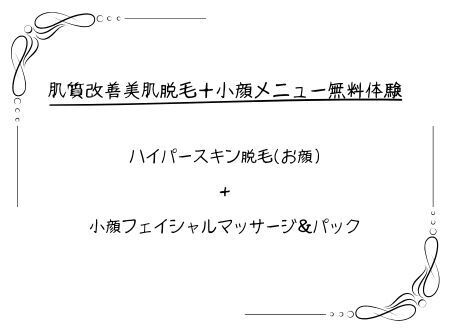 肌質改善美肌脱毛＋小顔メニュー無料体験
ハイパースキン脱毛(お顔)
+
小顔フェイシャルマッサージ&パック